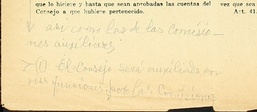 que lo hiciere y hasta que sean aprobadas las cuentas del
Consejo a que hubiere pertenecido.
vez que sea
Art. 41
y así como las de las comisio-
nes auxiliares
(1) El Consejo será auxiliado en
sus funciones por las Comisiones